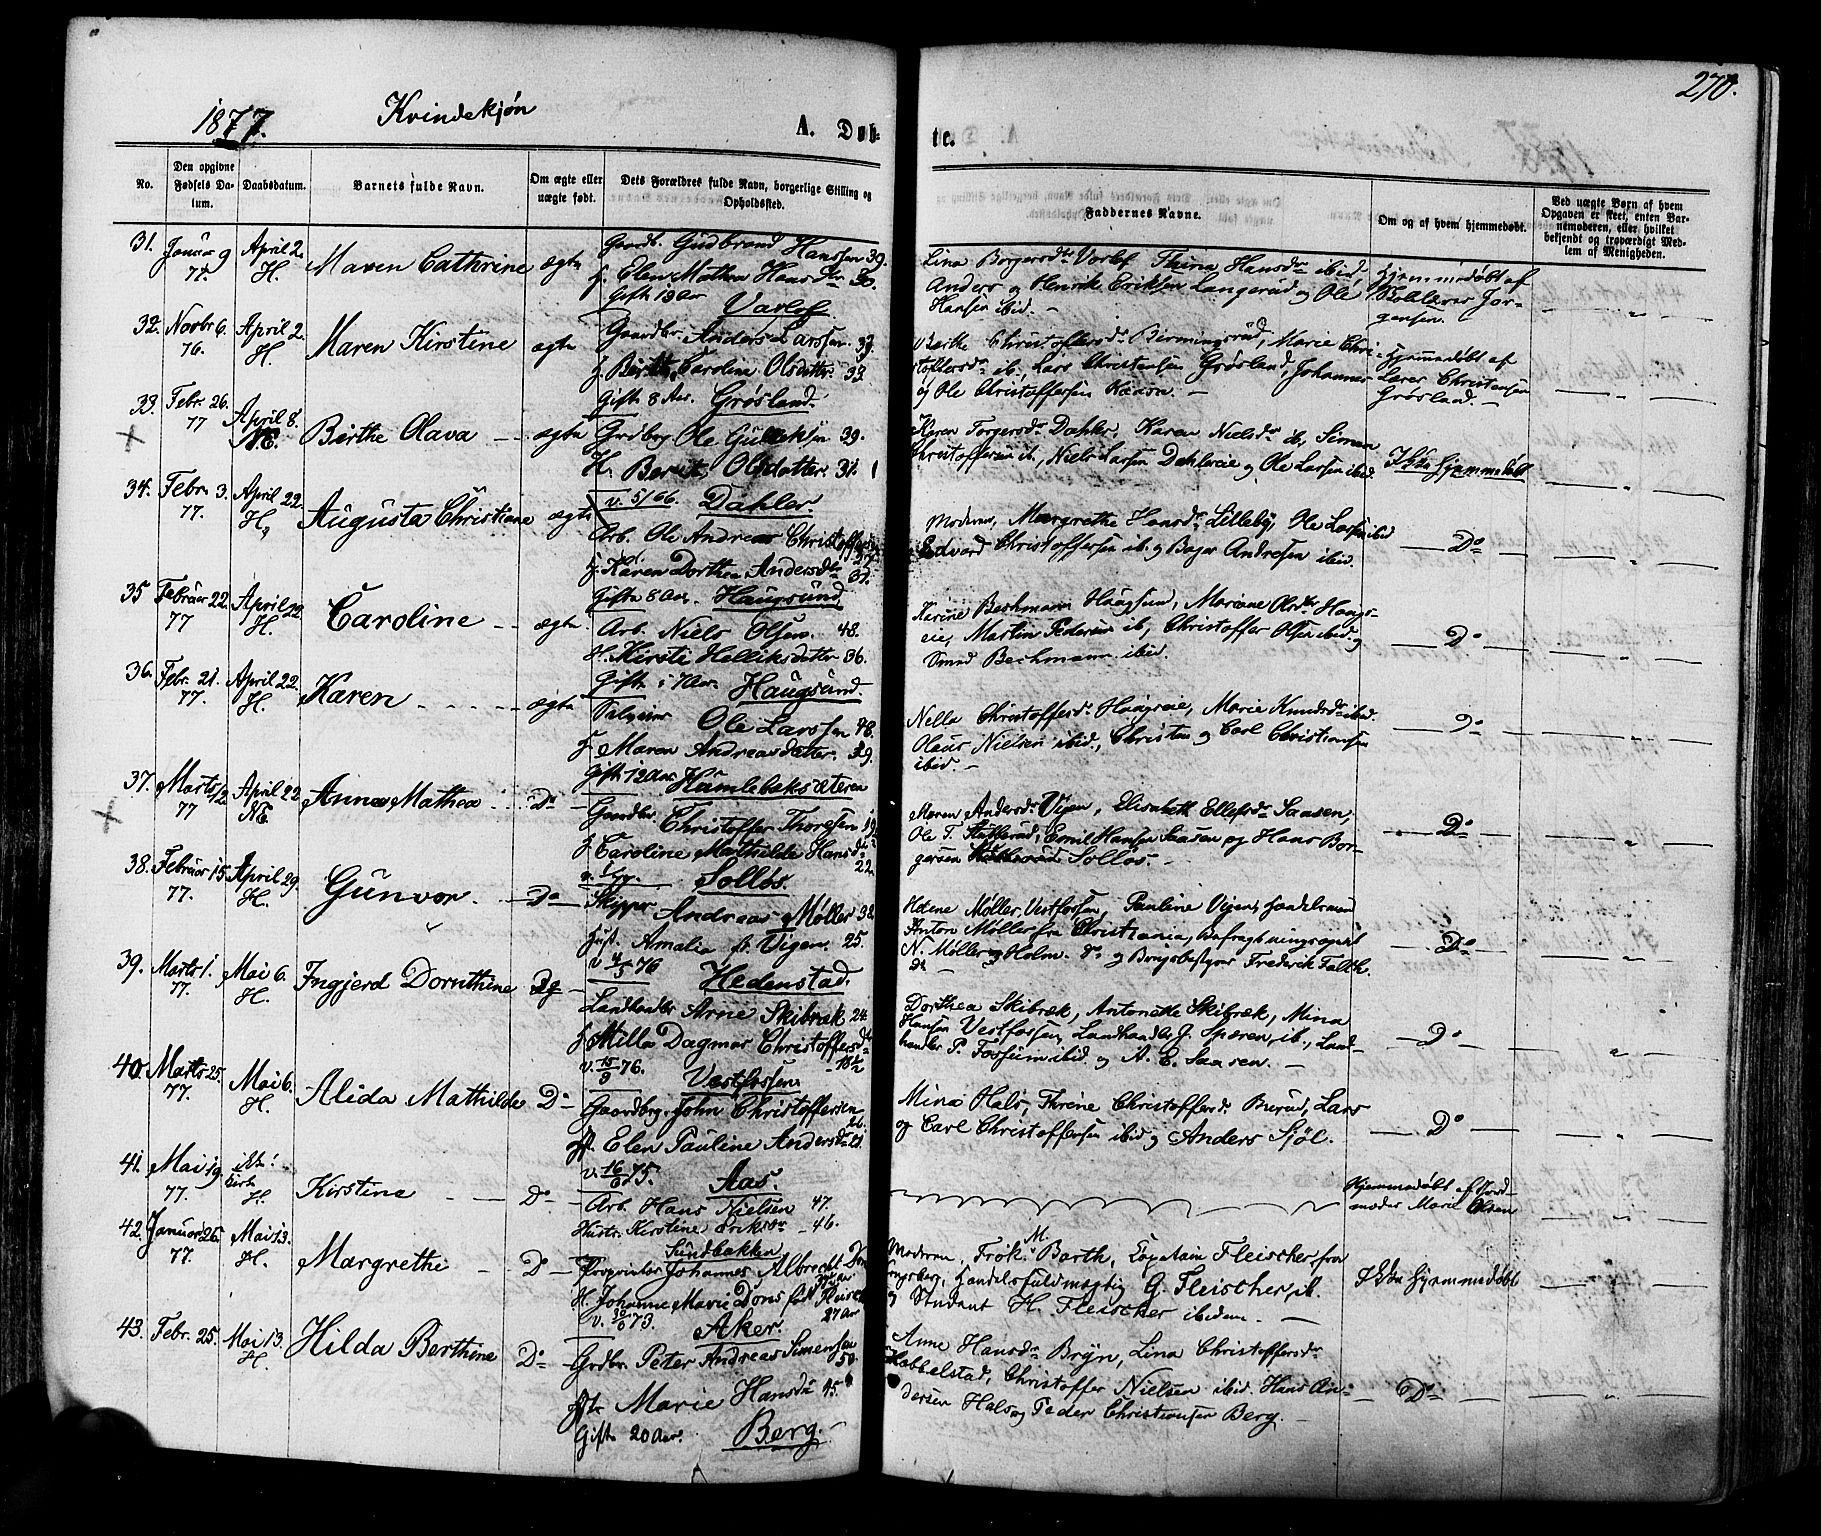 270.
1877.
Kvindekjøn
A. Døb-
te.
No.
Den opgivne Fødsels Datum.
Daabsdatum.
Barnets fulde Navn.
Om ægte eller uægte født.
Dets Forældres fulde Navn, borgerlige Stilling og Opholdssted.
Faddernes Navne.
Om og af hvem hjemmedøbt.
Ved uægte Børn af hvem Opgaven er skeet, enten Barnemoderen, eller hvilket bekjendt og troværdigt Medlem af Menigheden.
31. Januar 9 77. April 2. H. Maren Cathrine ægte
Gaardb. Gudbrand Hanssen 39.
H. Elen Mathea Hansdtr 30.
Gift 12 Aar Varlof
Lina Borgersdtr Vorlof Thina Hansdr ibid,
Anders og Henrik Eriksen Langerud og Ole
Hansen ibid. —
Hjemmedøbt af
Jørgensen.
32. Novbr 6. 76. April 2 H. Maren Kirstine ægte
Gaardbr. Anders Larssen. 37.
H. Berthe Caroline Olsdatter. 33.
Gift 8 Aar. Grøsland.
Berthe Christoffersdr. Birmingrud, Marie Christoffersdr ib., Lars Christensen Grøsland, Johannes
og Ole Christoffersen
Hjemmedøbt af
Lærer Christensen
Grøsland. —
33. Febr. 26. 77 April 8. NE. Birthe Olava — ægte
Grdbrg. Ole Gulliksen 39.
H. Berit Olsdatter. 31.
v. 5/66. Dahler.
Karen Torgersdr Dahler, Karen Nielsdr ib, Simen
Christoffersen ib., Niels Larsen Dahlereie og Ole Larsen ibid.
Ikke hjemmedøbt
34. Febr. 3. 77. April 22. H. Augusta Christiane ægte
Arb. Ole Andreas Christoffers
H. Karen Dorthea Andersdtr 31.
Gift 8 Aar. Haugsund.
Moderen, Margrethe Hansdr. Lilleby, Ole Larsen ibid
Edvard Christoffersen ib. og Andresen ibid.
— Do —
35 Februar 22. 77 April 22. H. Caroline — ægte
Arb. Niels Olsen. 48.
H. Kirsti Helliksdatter 36.
Gift i 7 Aar. Haugsund.
Karine Bechmann Haugsun, Mariane Olsdr. Haugseie, Martin Pedersen ib, Christoffer Olsen ibid. og
Bechmann ibid.
— Do —
36. Febr. 21. 77. April 22. H. Karen ægte
Ole Larssen 48.
H. Maren Andreasdatter. 39.
Gift 12 Aar. Hamlebeksæteren
Nella Christoffersdr. Haugseie, Marie Knudsdr ibid.
Olaus Nielsen ibid., Christen og Carl Christiansen
ibid. —
— Do —
37. Marts 12. 77 April 22. NE. Anna Mathea Do —
Gaardbr. Christoffer Thoresen
H. Caroline Mathilde Hansdtr 22.
Solløs.
Maren Andersdr. Vigen, Elisabeth Ellefsdr Saasen,
Ole T. Stubberud, Emil Hansen Saasen og Hans Borgersen Solløs. —
— Do —
38. Februar 15. 77. April 29. H. Gunvor. — Do —
Skipper Andreas Møller 38.
Hust. Amalia f. Vigen. 25.
v 4/5 76 Hedenstad.
Helene Møller Vestfossen, Pauline Vigen, Handelsmand
Anton Møller fra Christiania, Befragtningsagent
N. Møller og Holm. do og Brugsbestyrer Frederik Falck.
— Do —
39. Marts 1. 77. Mai 6. H. Ingjerd Dorothine
Landhandler Arne Skibræk 24
H. Milla Dagmar Christoffersdtr
v. 15/9 76. Vestfossen
Dorthea Skibræk, Antonette Skibræk, Mina
Hansen Vestfossen, Landhandler J. Speren, ib., Landhandler P. Fossum ibid og A. E. Saasen. —
— Do —
40. Marts 25. 77. Mai 6. H. Alida Mathilde Do —
Gaardbrg. John Christoffersen 26.
H. Elen Pauline Andersdtr 21.
v. 16/6 75. Aas.
Mina Hals, Thrine Christoffersdr. Burud, Lars
og Carl Christoffersen ibid og Anders Sjøl.
— Do —
41. Mai 19. 77. H. Kirstine — Do —
Arb. Hans Nielsen 47.
Hustr. Kirstine Eriksdr — 46.
Sundbakken
Hjemmedøbt af Jordmoder Marie Olsen
42. Januar 26. 77. Mai 13. H. Margrethe — Do —
Proprietær Johannes Albrecht Dons
H. Johanne Marie Dons født
v. 73. Aker. 27 Aar
Moderen, Frøk. M. Barth, Capetain Fleischer fra
Kongsberg, Handelsfuldmægtig G. Fleischer, ib.
og Student H. Fleischer ibidem. —
Ikke hjemmedøbt
43. Febr. 25. Mai 13. H. Hilda Berthine Do —
Grdbr. Peter Andreas Simensen 50.
H. Marie Hansdtr 45.
Gift 20 Aar. Berg. —
Anne Hansdr. Bryn, Lina Christoffersdr
Habbelstad, Christoffer Nielsen ibid. Hans Andersen Hals og Peder Christiansen Berg. —
— Do —